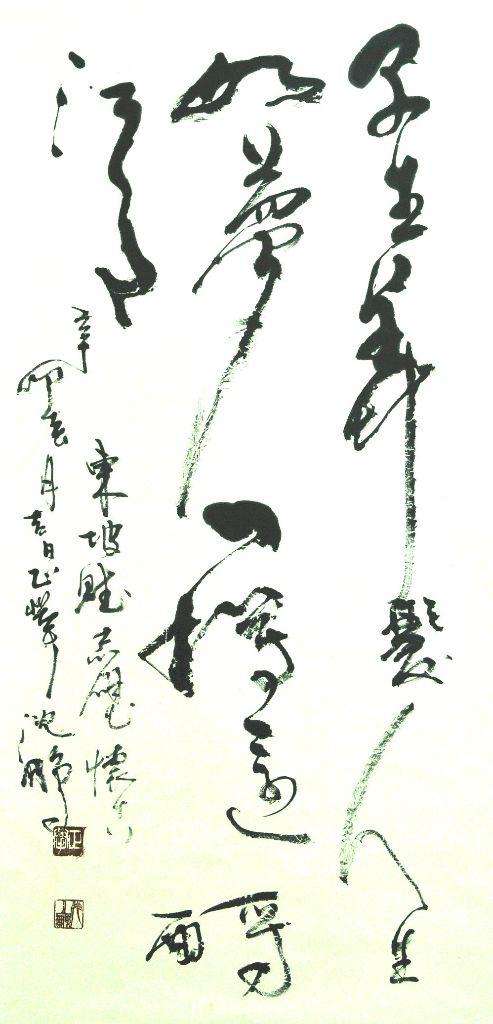 早生華髮人生
如夢一樽還酹
江月
東坡賦赤壁懷古
辛卯春月吉日沈鵬